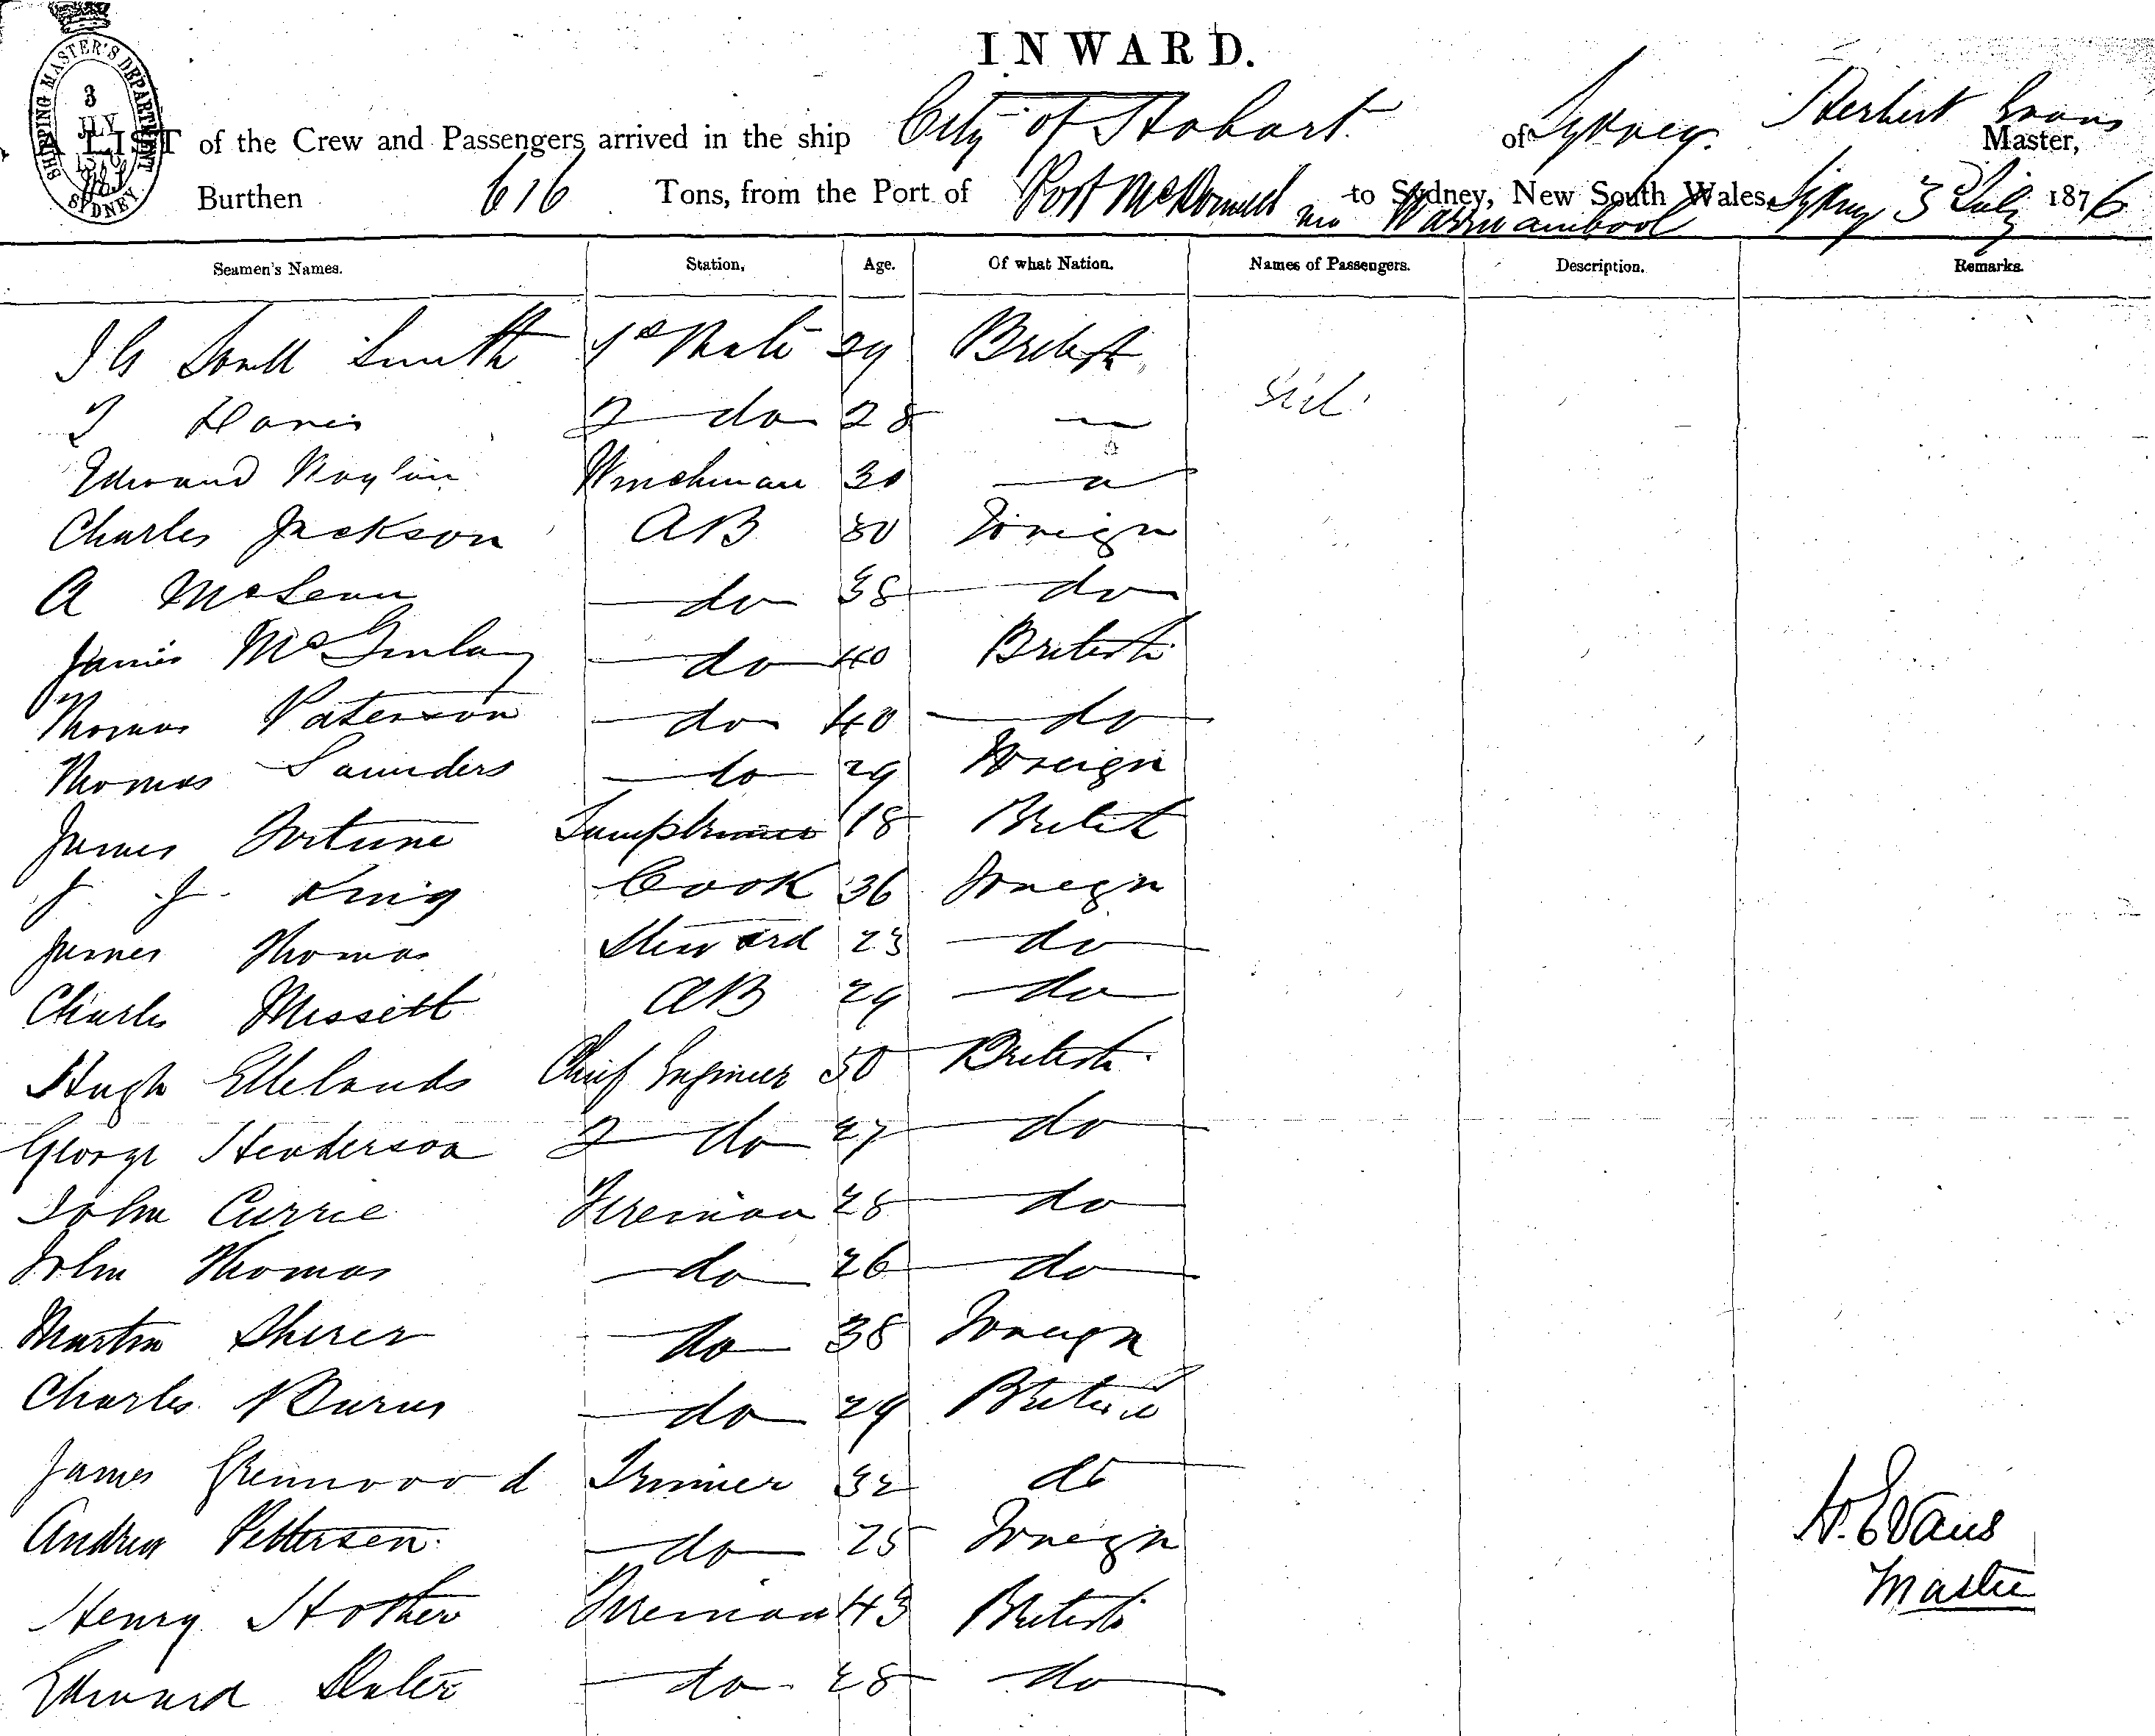 INWARD.
SHIPPING MASTER'S DEPARTMENT 3 JLY 1876 SYDNEY
A LIST of the Crew and Passengers arrived in the ship City of Hobart. of Sydney. Herbert Evans Master,
Burthen 616 Tons, from the Port of Port McDonnell via Warrnambool to Sydney, New South Wales, Sydney 3 July 1876
Seamen's Names. Station. Age. Of what Nation. Names of Passengers. Description. Remarks.
Smith 1st Mate 29 British
2 do 28
Edward Winchman 30
Charles Jackson AB 30 Foreign
A McLean do 38 do
James McGinlay do 40 British
Thomas Paterson do 40 do
Thomas Saunders do 29 Foreign
James Fortune Lamptrimmer 18 British
J. J. King Cook 36 Foreign
James Thomas Steward 23 do
Charles Messett AB 29 do
Hugh Ellelands Chief Engineer 50 British
George Henderson 2 do 27 do
John Currie Fireman 28 do
John Thomas do 26 do
Martin Sherer do 38 Foreign
Charles Burns do 29 British
James Greenwood Trimmer 32 do
Andrew Pettersen. do 25 Foreign
Henry Hother Fireman 43 British
Edward Slater do 28 do
H. Evans
Master